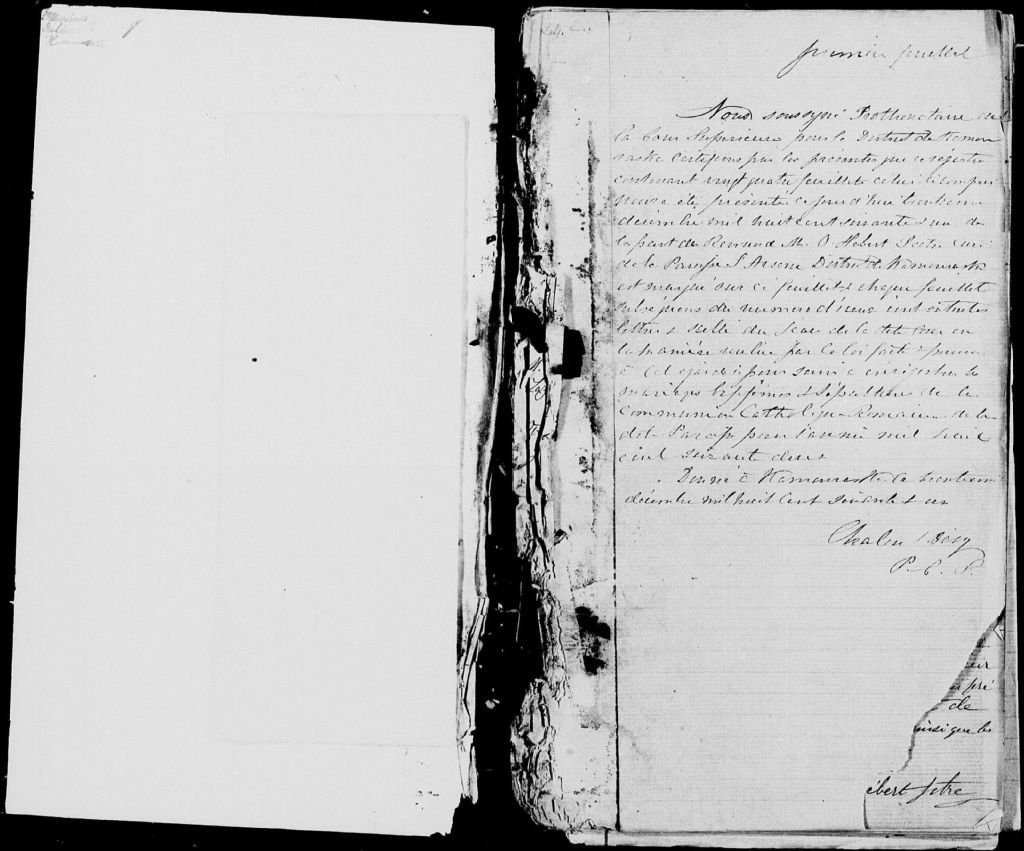 premier feuillet
Nous soussigné Prothonotaire de
la Cour Supérieure pour le District de Kamou
raska Certifions par les présentes que ce régistre
contenant vingt quatre feuillets celui ci compris
nous a été présenté ce jour d'hui trentième
décembre mil huit cent soixante & un de
la part du Révérend M. O Hébert Prêtre Curé
de la Paroisse St Arsène District de Kamouraska
est marqué sur ce feuillet & chaque feuillet
subséquent du numéro d'iceux écrit en toutes
lettres & scellé du sceau de la dite Cour en
la manière voulue par la loi faite & pourvue
à cet égard & pour servir à enrégistrer les
mariages baptêmes & sépultures de la
Communion Catholique Romaine de la
dite Paroisse pour l'année mil huit
cent soixante deux
Donné à Kamouraska ce trentième
décembre mil huit cent soixante & un
P. C. S.
de
ainsi que les
ébert ptre